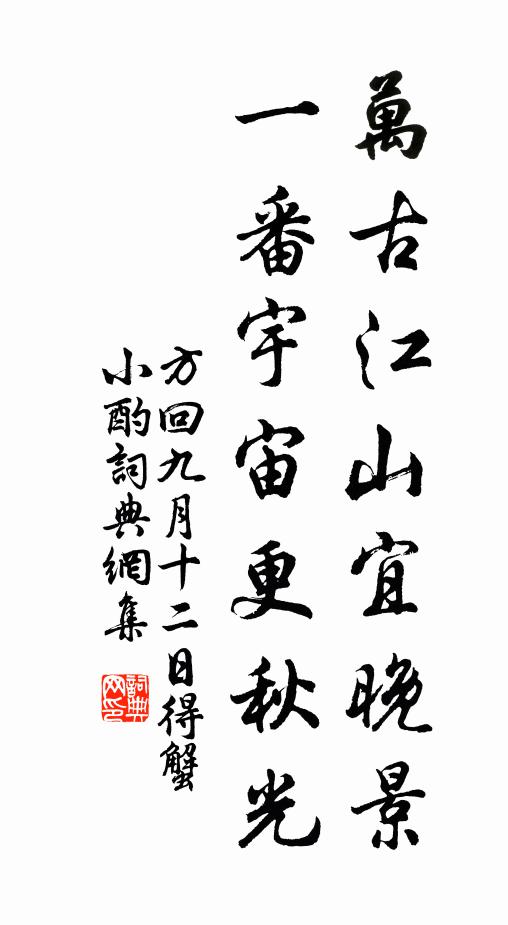 萬古江山宜晚景
一番宇宙更秋光
方回九月十二日得蟹
小酌詞典網集
詞典
网印